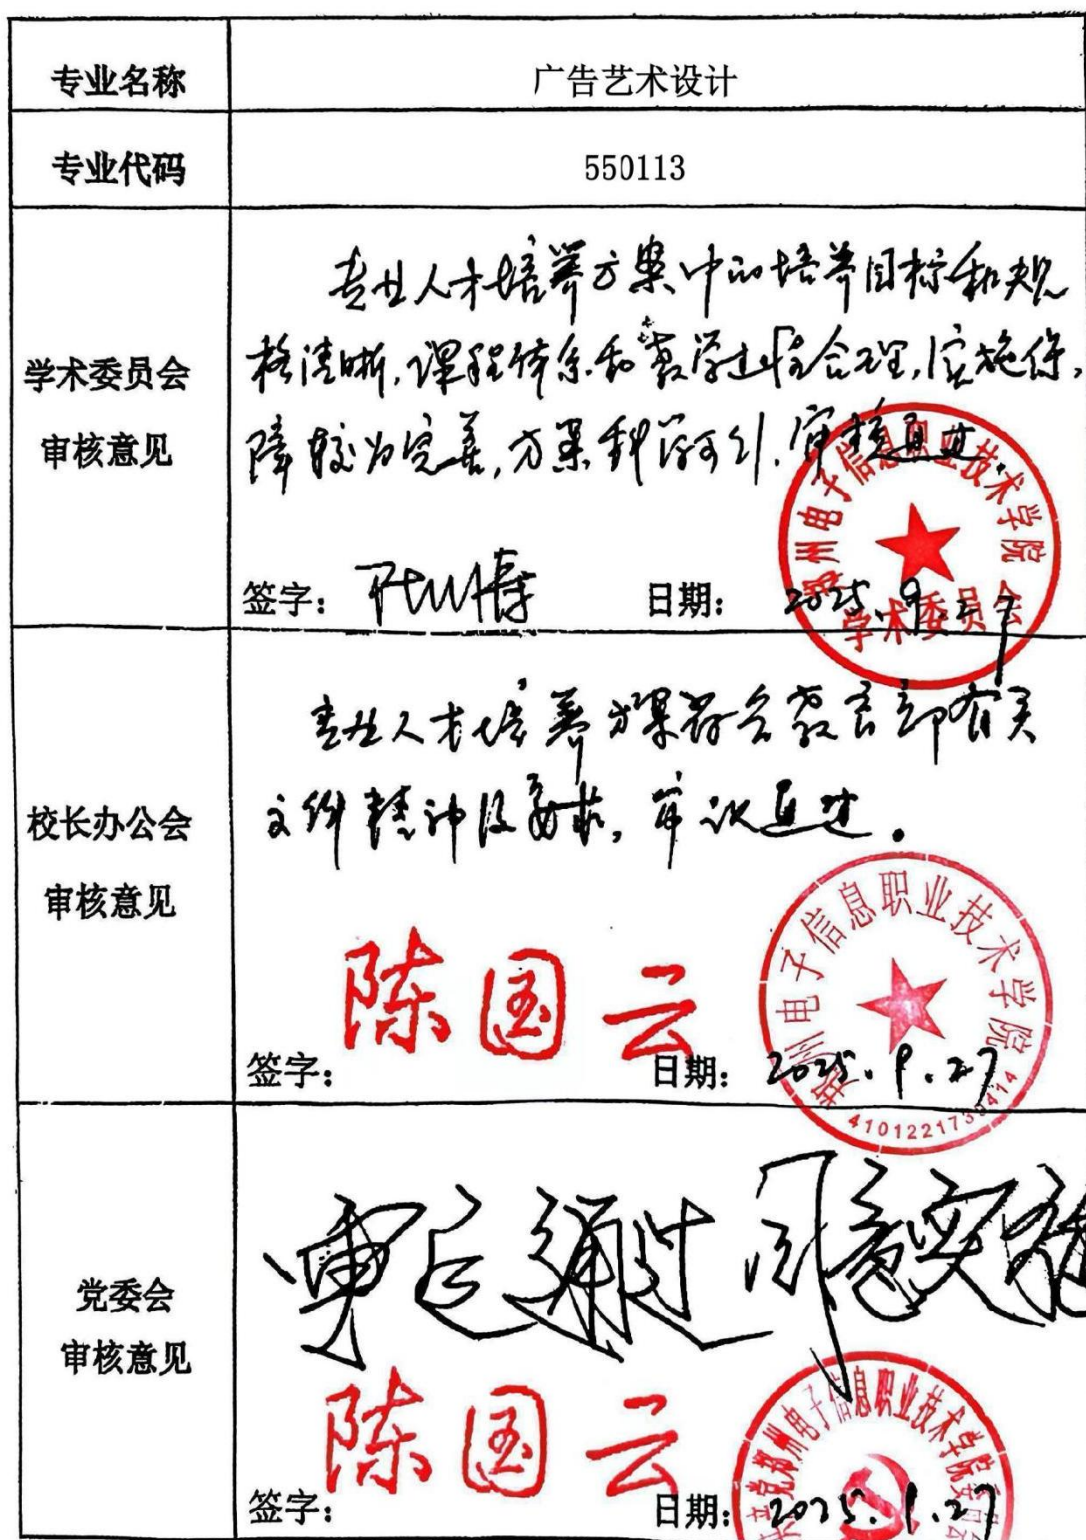 专业名称
广告艺术设计
专业代码
550113
学术委员会
审核意见
专业人才培养方案中的培养目标和规
格清晰,课程体系和教学进程合理,实施保
障较为完善,方案科学可行,审核通过.
签字:
日期: 2025.9.27
郑州电子信息职业技术学院
学术委员会
校长办公会
审核意见
专业人才培养方案符合教育部有关
文件精神及要求,审议通过。
陈国云
签字:
日期: 2025.9.27
郑州电子信息职业技术学院
党委会
审核意见
审定通过 同意实施
陈国云
签字:
日期: 2025.9.27
郑州电子信息职业技术学院委员会